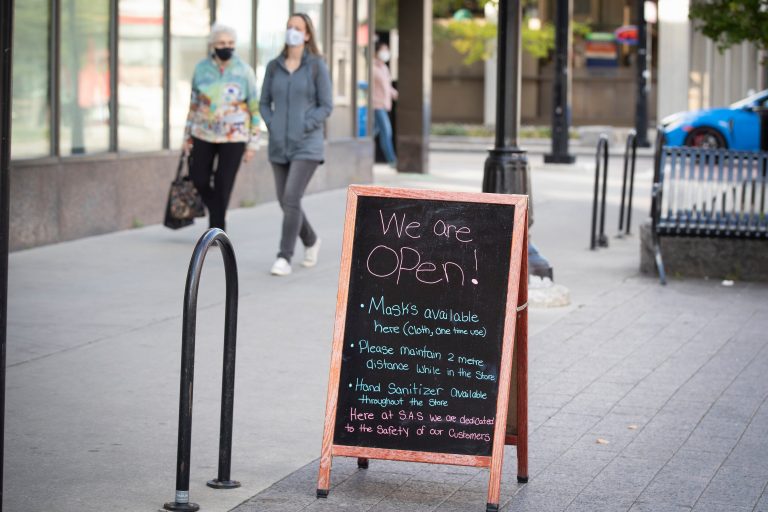 We are
OPen!
• Masks available
here (cloth, one time use)
• Please maintain 2 metre
distance while in the Store
• Hand Sanitizer available
throughout the Store
Here at S.A.S we are dedicated
to the Safety of our Customers